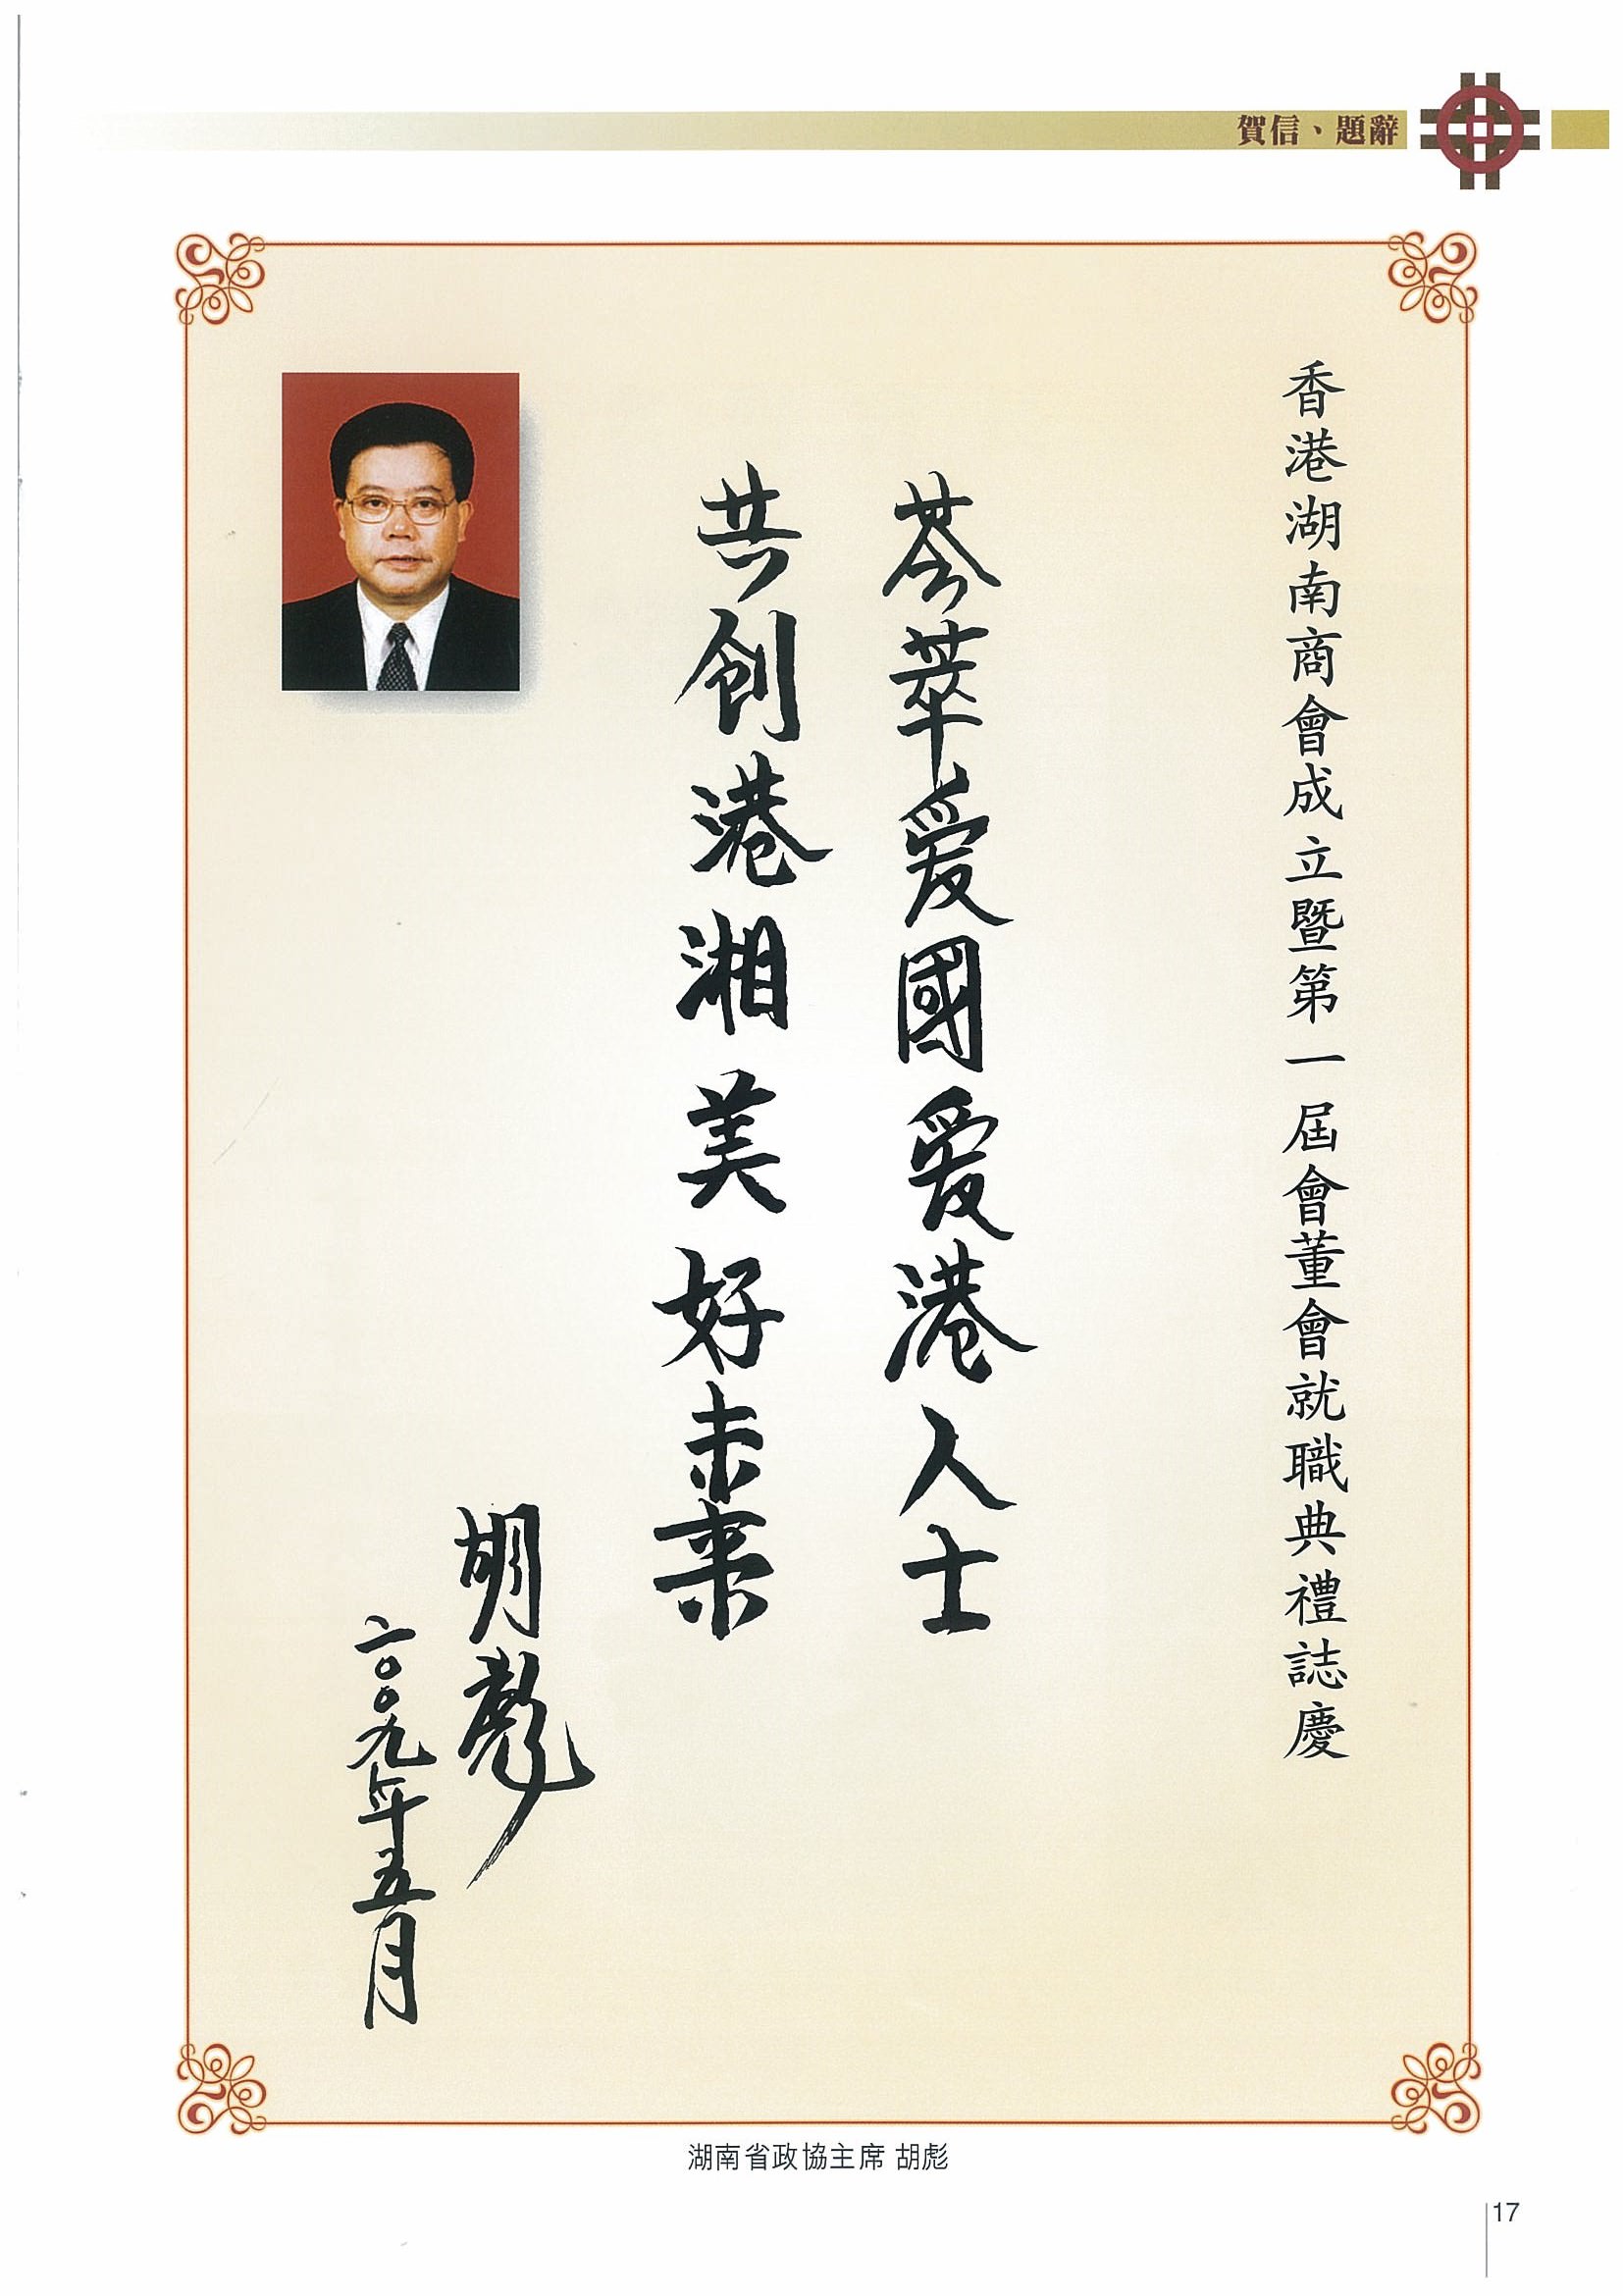 賀信、題辭
香港湖南商會成立暨第一屆會董會就職典禮誌慶
荟萃爱國爱港人士
共创港湘美好未来
胡彪
二〇〇九年五月
湖南省政協主席 胡彪
17